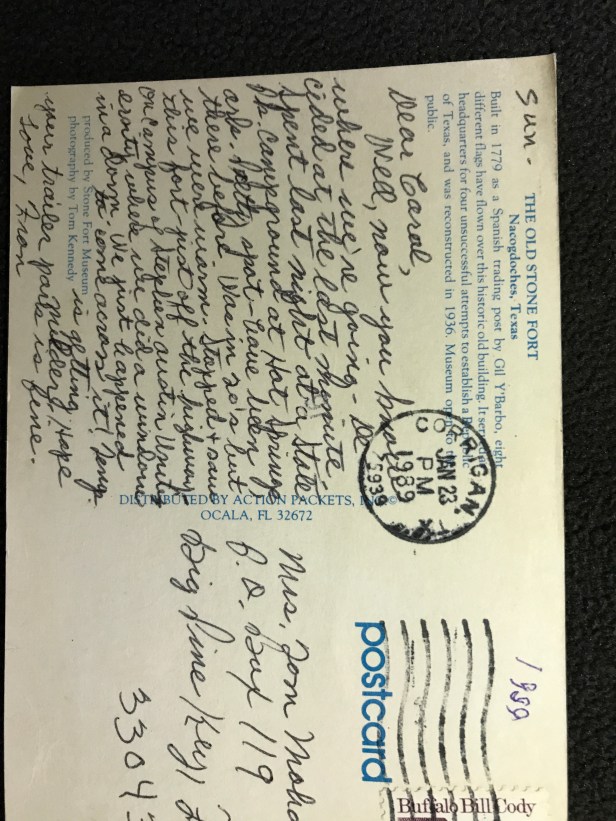 Sun-
THE OLD STONE FORT
Nacogdoches, Texas
Built in 1779 as a Spanish trading post by Gil Y'Barbo, eight
different flags have flown over this historic old building. It served as
headquarters for four unsuccessful attempts to establish a Republic
of Texas, and was reconstructed in 1936. Museum open to the
public.
Dear Carol,
Well, now you know
where we're going - De
cided at the last minute.
Spent last night at a State
Pk. campground at Hot Springs
Ark. Pretty spot - have been
there before. Was in 20's but
we were warm. Stopped & saw
this fort just off the highway
on campus of Stephen Austin Univ
ersity where we did a
in a dorm. We just happened
to come across it! Temp.
is getting milder! Hope
your trailer park is fine.
Love, Fran
produced by Stone Fort Museum
photography by Tom Kennedy
DISTRIBUTED BY ACTION PACKETS, INC.©
OCALA, FL 32672
CORRIGAN,
JAN 23
PM
1989
75939
1989
postcard
Buffalo Bill Cody
Mrs. Tom
P.O. Box 119
Big Pine Key,
3304